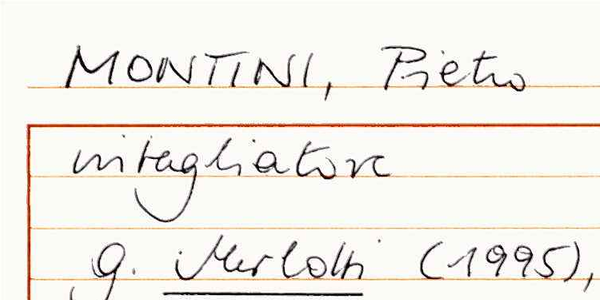 MONTINI, Pietro
intagliatore
g. Merlotti (1995),